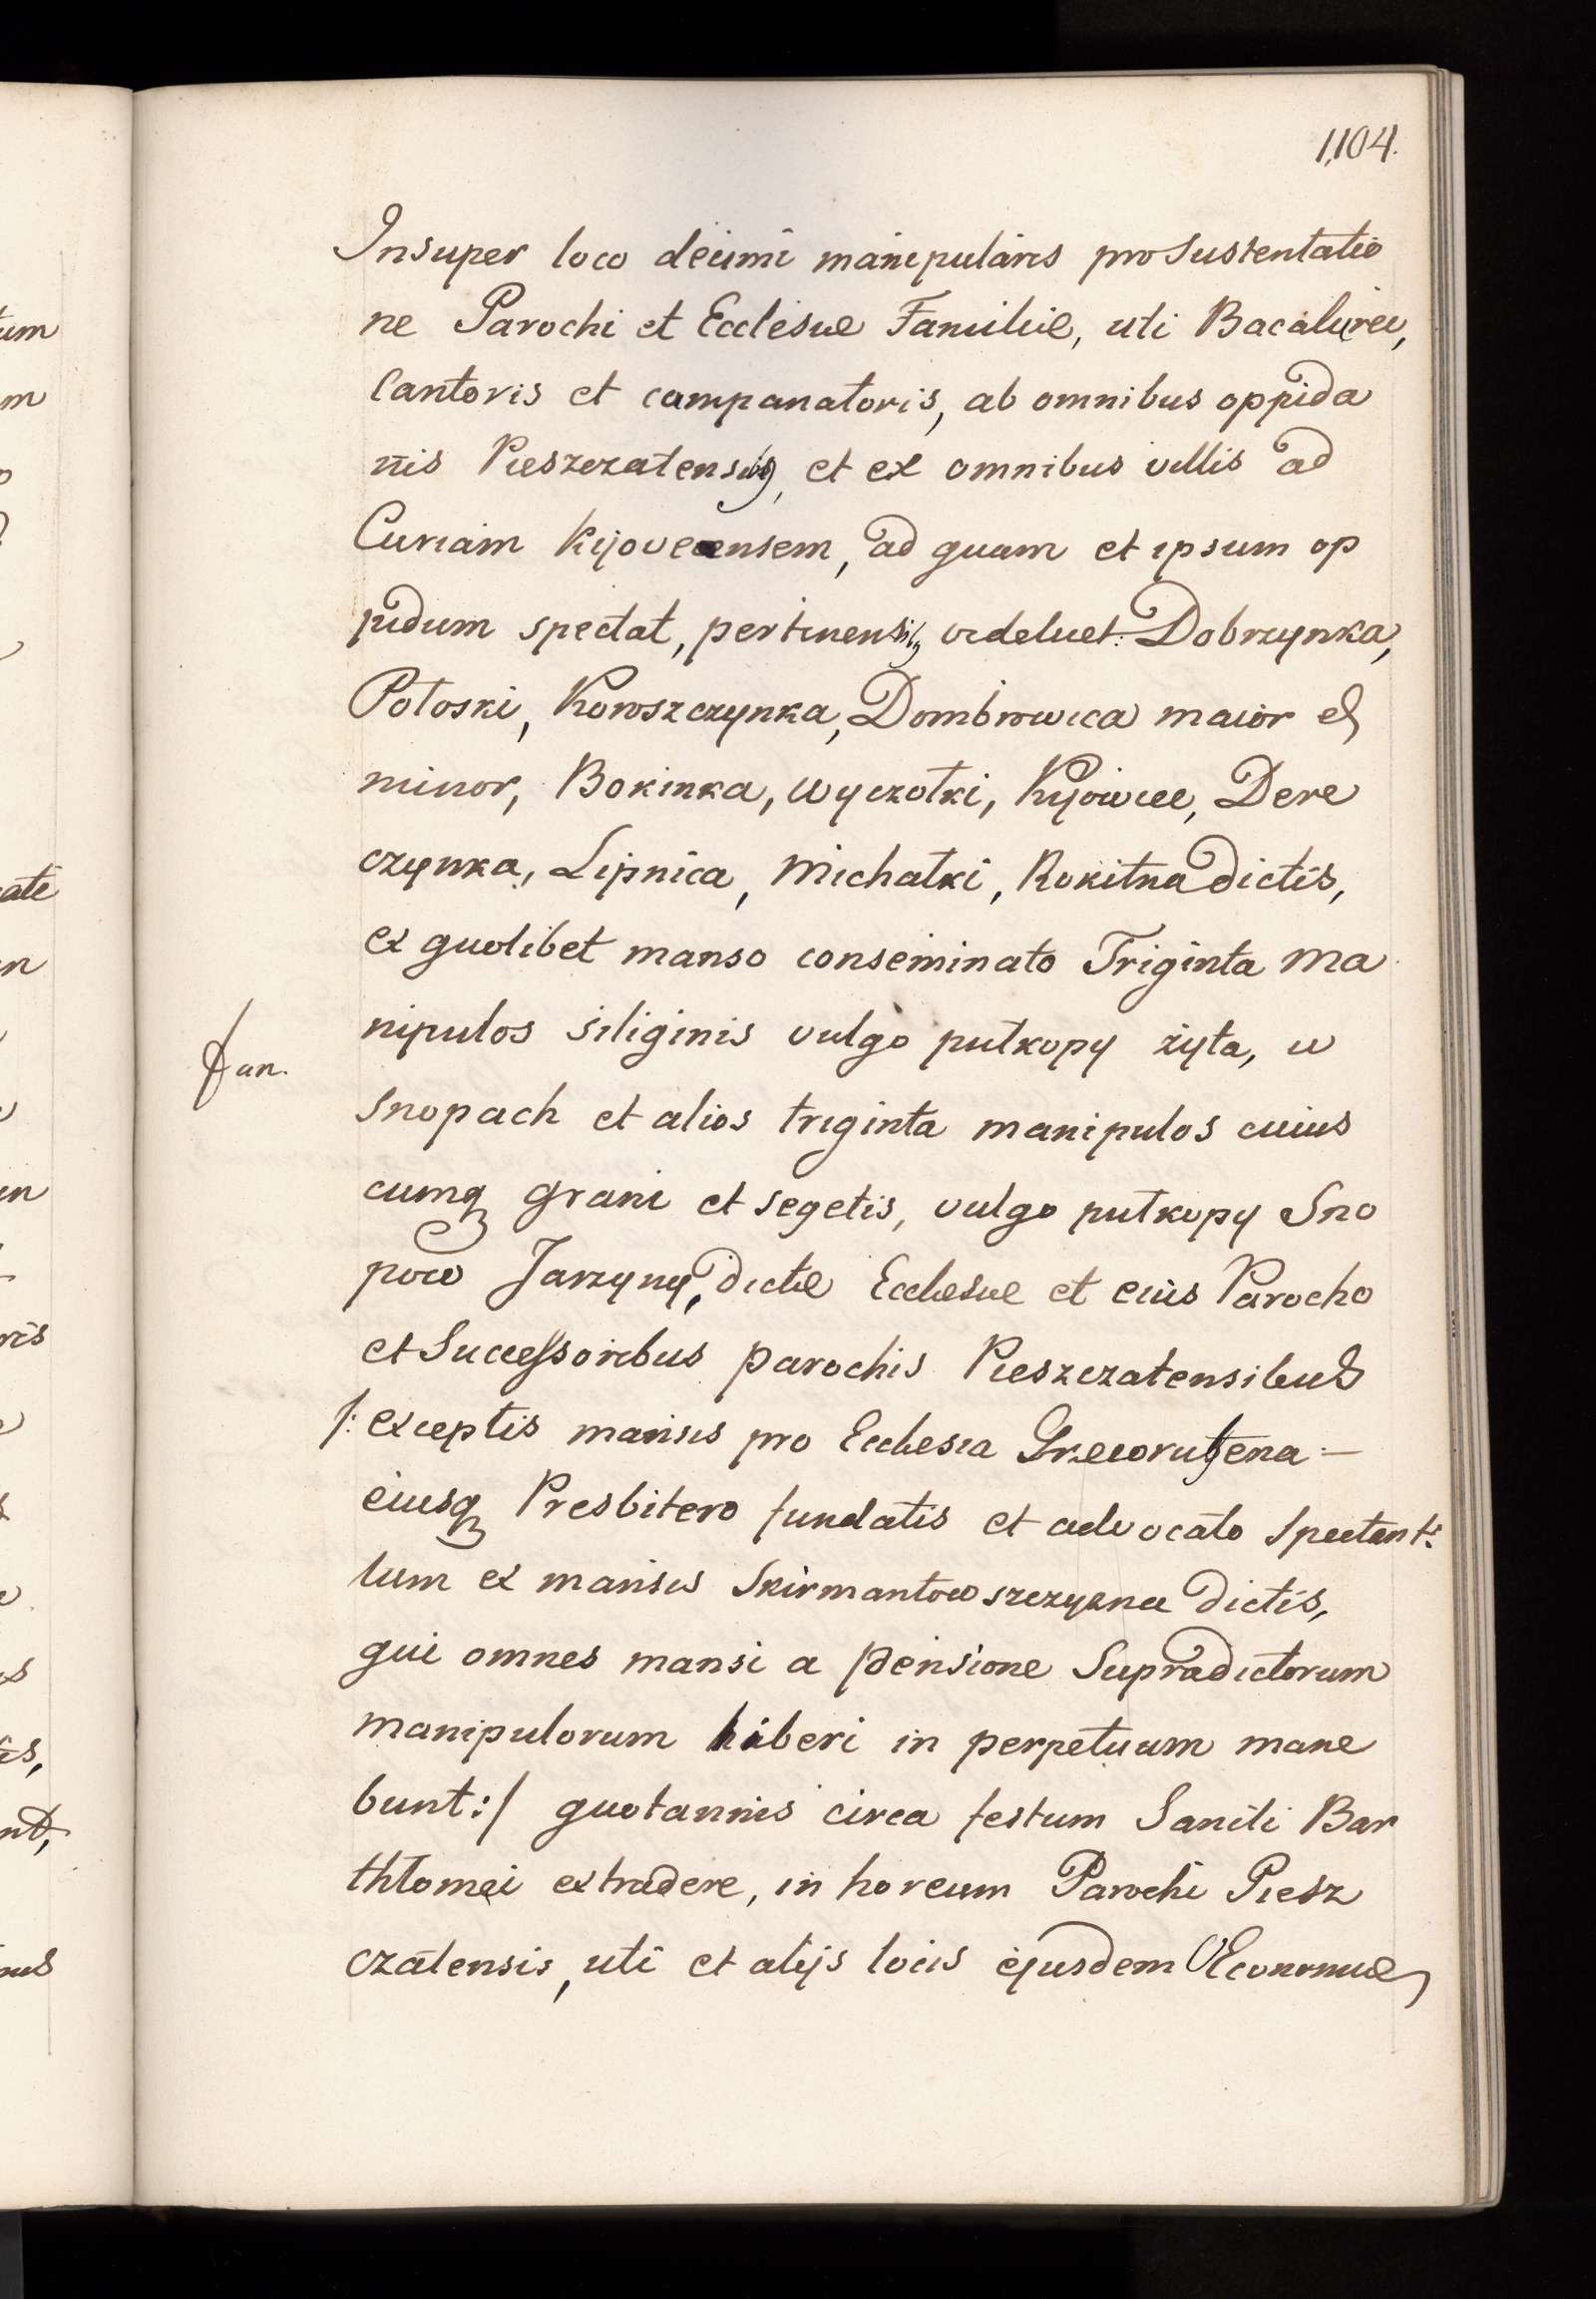 1,104.
Insuper loco decimi manipularis pro Sustentatio
ne Parochi et Ecclesiæ Familiæ, uti Bacalurei,
Cantoris et campanatoris, ab omnibus oppida
nis Pieszczatensibq, et ex omnibus villis ad
Curiam Kijovecensem, ad quam et ipsum op
pidum spectat, pertinensibq videlicet: Dobrzynka,
Połoski, Koroszczynka, Dombrowica maior et
minor, Bokinka, Wyczołki, Kyiowiec, Dere
czynka, Lipnica, Michałki, Rokitna dictis,
ex quolibet manso conseminato Triginta ma
nipulos siliginis vulgo pułkopy żyta, w
Jan.
snopach et alios triginta manipulos cuius
cumq grani et segetis, vulgo pułkopy Sno
pow Jarzyny, dictæ Ecclesiæ et eius Parocho
et Successoribus parochis Pieszczatensibus
/: exceptis mansis pro Ecclesia Græcorutena –
eiusq Presbitero fundatis et advocato spectanti:
tum ex mansis Skirmantowszczyzna dictis,
qui omnes mansi a pensione Supradictorum
manipulorum liberi in perpetuum mane
bunt:/ quotannis circa festum Sancti Bar
thłomei extradere, in horeum Parochi Piesz
czatensis, uti et alijs locis ejusdem Œconomiæ